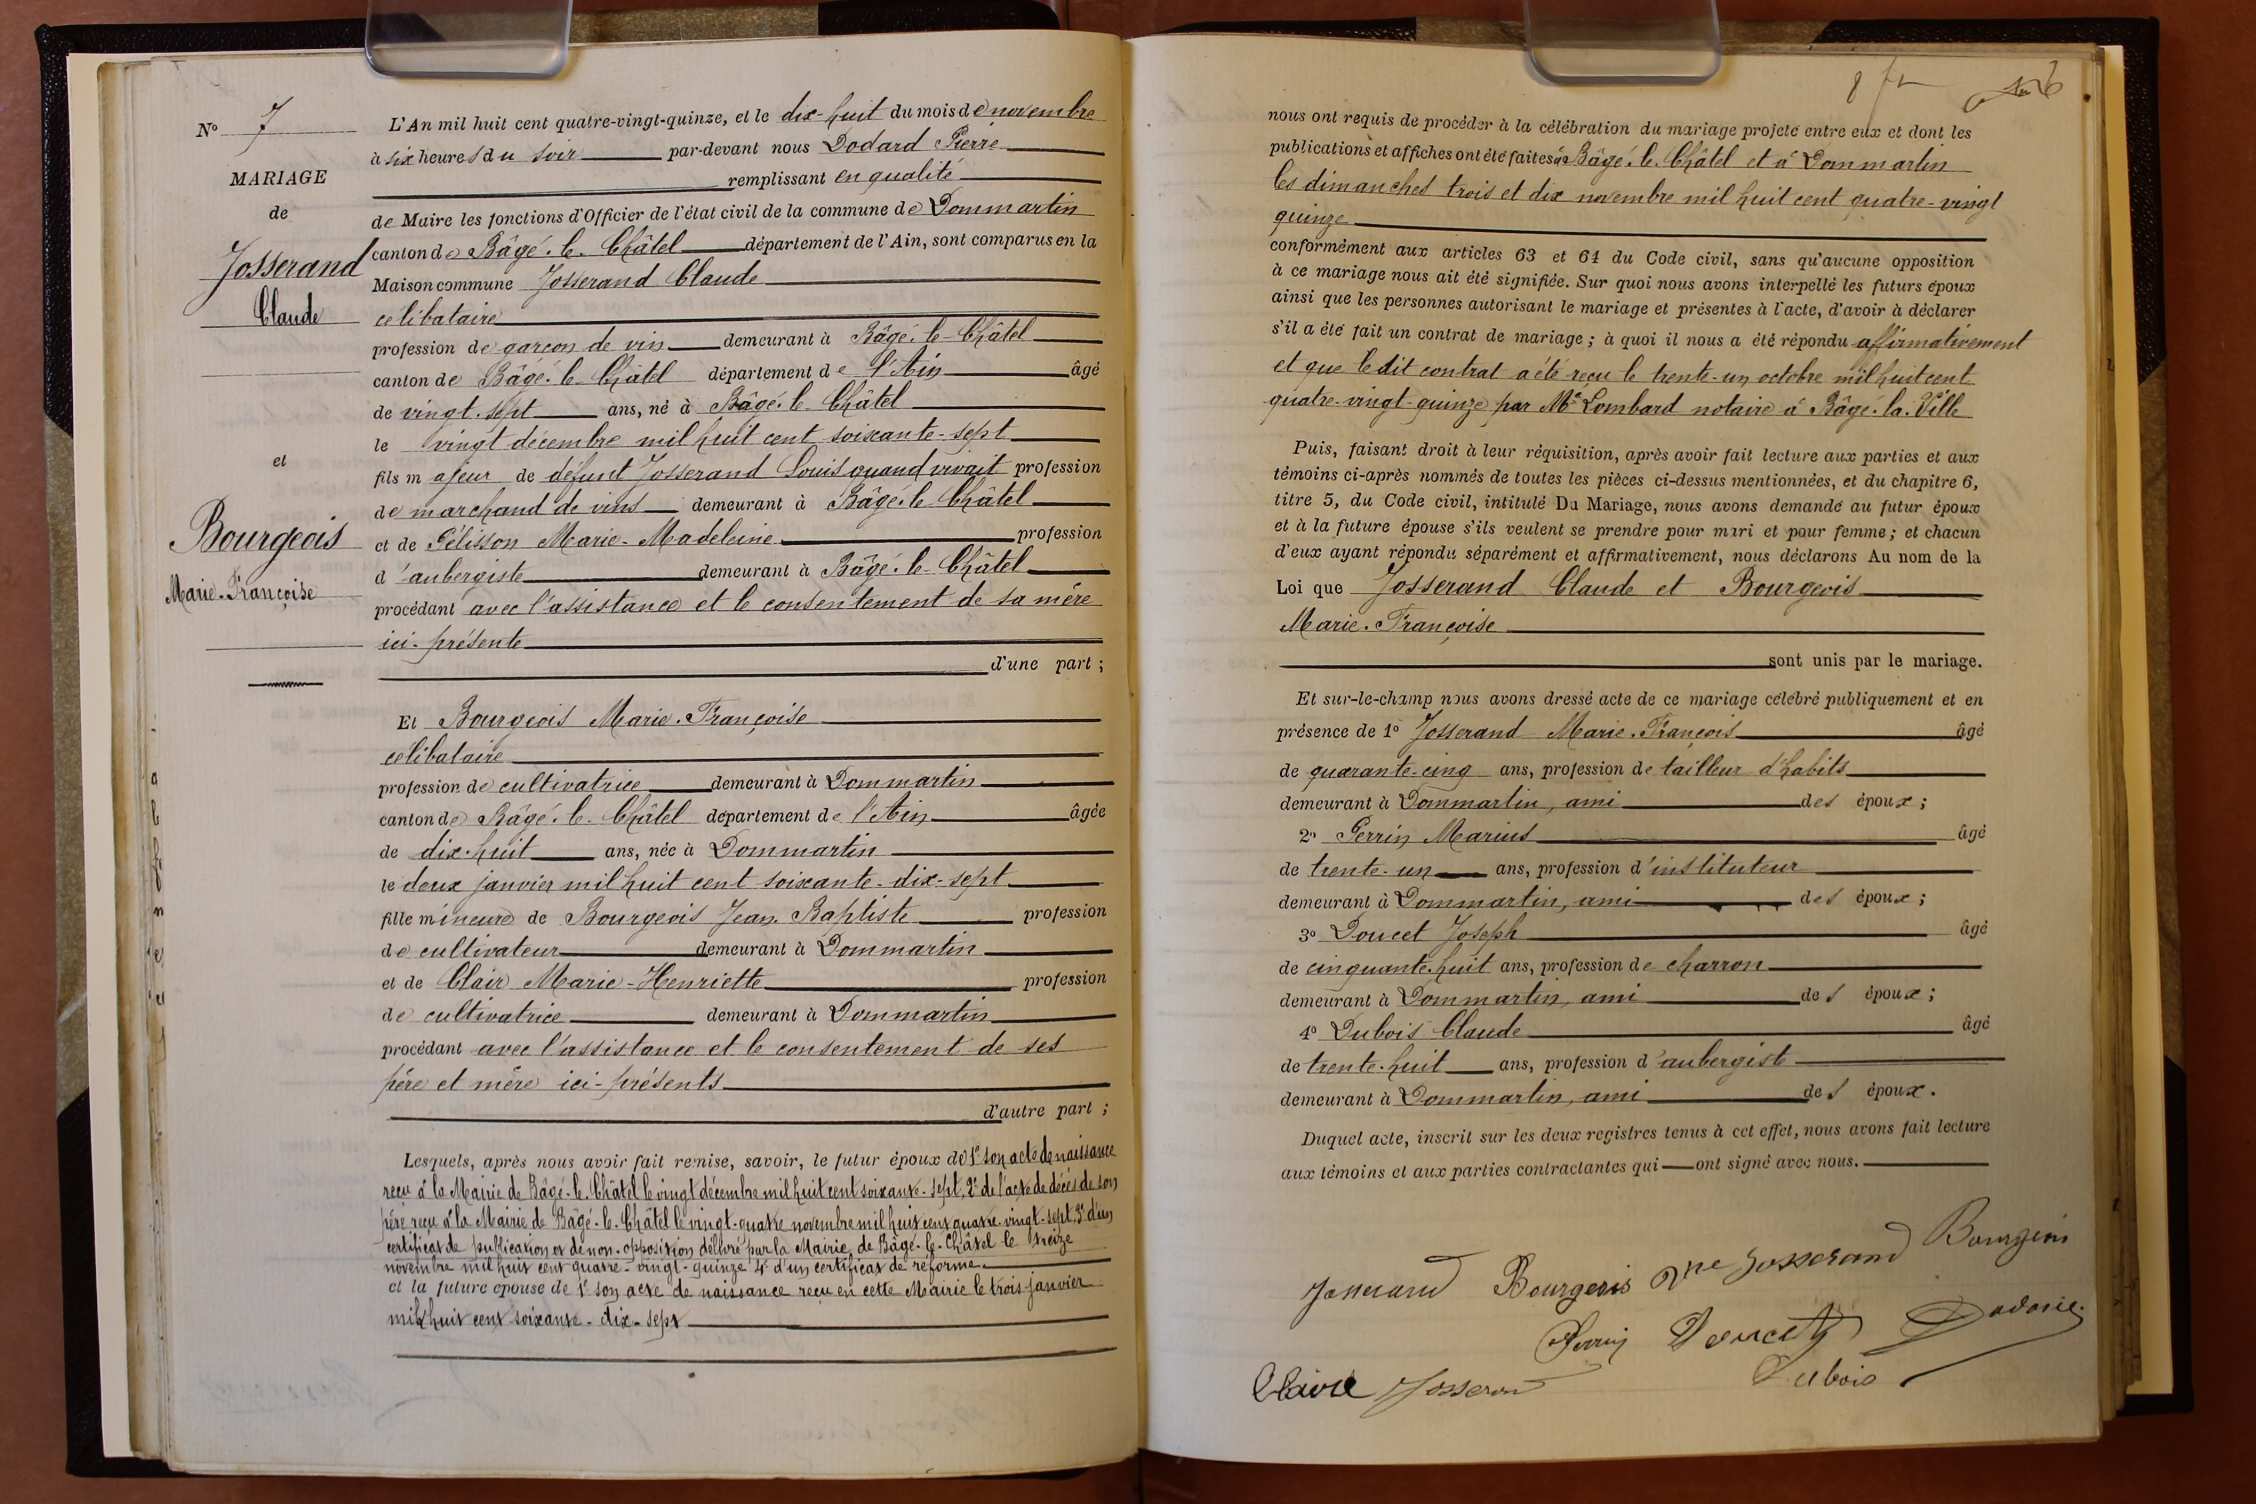 Nº 7
MARIAGE
de
Josserand
Claude
et
Bourgeois
Marie-Françoise
L'An mil huit cent quatre-vingt-quinze, et le dix-huit du mois de novembre
à six heures du soir par-devant nous Dodard Pierre
remplissant en qualité
de Maire les fonctions d'Officier de l'état civil de la commune de Dommartin
canton de Bâgé-le-Châtel département de l'Ain, sont comparus en la
Maison commune Josserand Claude
celibataire
profession de garçon de vin demeurant à Bâgé-le-Châtel
canton de Bâgé-le-Châtel département de l'Ain âgé
de vingt-sept ans, né à Bâgé-le-Châtel
le vingt décembre mil huit cent soixante-sept
fils majeur de défunt Josserand Louis quand vivait profession
de marchand de vins demeurant à Bâgé-le-Châtel
et de Pélisson Marie-Madeleine profession
d'aubergiste demeurant à Bâgé-le-Châtel
procédant avec l'assistance et le consentement de sa mère
ici-présente
d'une part ;
Et Bourgeois Marie-Françoise
celibataire
profession de cultivatrice demeurant à Dommartin
canton de Bâgé-le-Châtel département de l'Ain âgée
de dix-huit ans, née à Dommartin
le deux janvier mil huit cent soixante-dix-sept
fille mineure de Bourgeois Jean-Baptiste profession
de cultivateur demeurant à Dommartin
et de Clair Marie-Henriette profession
de cultivatrice demeurant à Dommartin
procédant avec l'assistance et le consentement de ses
père et mère ici-présents
d'autre part ;
Lesquels, après nous avoir fait remise, savoir, le futur époux de 1º son acte de naissance
reçu à la Mairie de Bâgé-le-Châtel le vingt décembre mil huit cent soixante-sept, 2º de l'acte de décès de son
père reçu à la Mairie de Bâgé-le-Châtel le vingt-quatre novembre mil huit cent quatre-vingt-sept, 3º d'un
certificat de publication et de non-opposition délivré par la Mairie de Bâgé-le-Châtel le treize
novembre mil huit cent quatre-vingt-quinze 4º d'un certificat de réforme
et la future épouse de 1º son acte de naissance reçu en cette Mairie le trois janvier
mil huit cent soixante-dix-sept
nous ont requis de procéder à la célébration du mariage projeté entre eux et dont les
publications et affiches ont été faites à Bâgé-le-Châtel et à Dommartin
les dimanches trois et dix novembre mil huit cent quatre-vingt
quinze
conformément aux articles 63 et 64 du Code civil, sans qu'aucune opposition
à ce mariage nous ait été signifiée. Sur quoi nous avons interpellé les futurs époux
ainsi que les personnes autorisant le mariage et présentes à l'acte, d'avoir à déclarer
s'il a été fait un contrat de mariage ; à quoi il nous a été répondu affirmativement
et que le dit contrat a été reçu le trente-un octobre mil huit cent
quatre-vingt-quinze par Me Lombard notaire à Bâgé-la-Ville
Puis, faisant droit à leur réquisition, après avoir fait lecture aux parties et aux
témoins ci-après nommés de toutes les pièces ci-dessus mentionnées, et du chapitre 6,
titre 5, du Code civil, intitulé Du Mariage, nous avons demandé au futur époux
et à la future épouse s'ils veulent se prendre pour mari et pour femme ; et chacun
d'eux ayant répondu séparément et affirmativement, nous déclarons Au nom de la
Loi que Josserand Claude et Bourgeois
Marie-Françoise
sont unis par le mariage.
Et sur-le-champ nous avons dressé acte de ce mariage célébré publiquement et en
présence de 1º Josserand Marie-François âgé
de quarante-cinq ans, profession de tailleur d'habits
demeurant à Dommartin, ami des époux ;
2º Perrin Marius âgé
de trente-un ans, profession d'instituteur
demeurant à Dommartin, ami des époux ;
3º Doucet Joseph âgé
de cinquante-huit ans, profession de charron
demeurant à Dommartin, ami des époux ;
4º Dubois Claude âgé
de trente-huit ans, profession d'aubergiste
demeurant à Dommartin, ami des époux.
Duquel acte, inscrit sur les deux registres tenus à cet effet, nous avons fait lecture
aux témoins et aux parties contractantes qui ont signé avec nous.
Josserand Bourgeois Josserand Bourgeois
Perrin Doucet Dodard
Claire Josserand Dubois